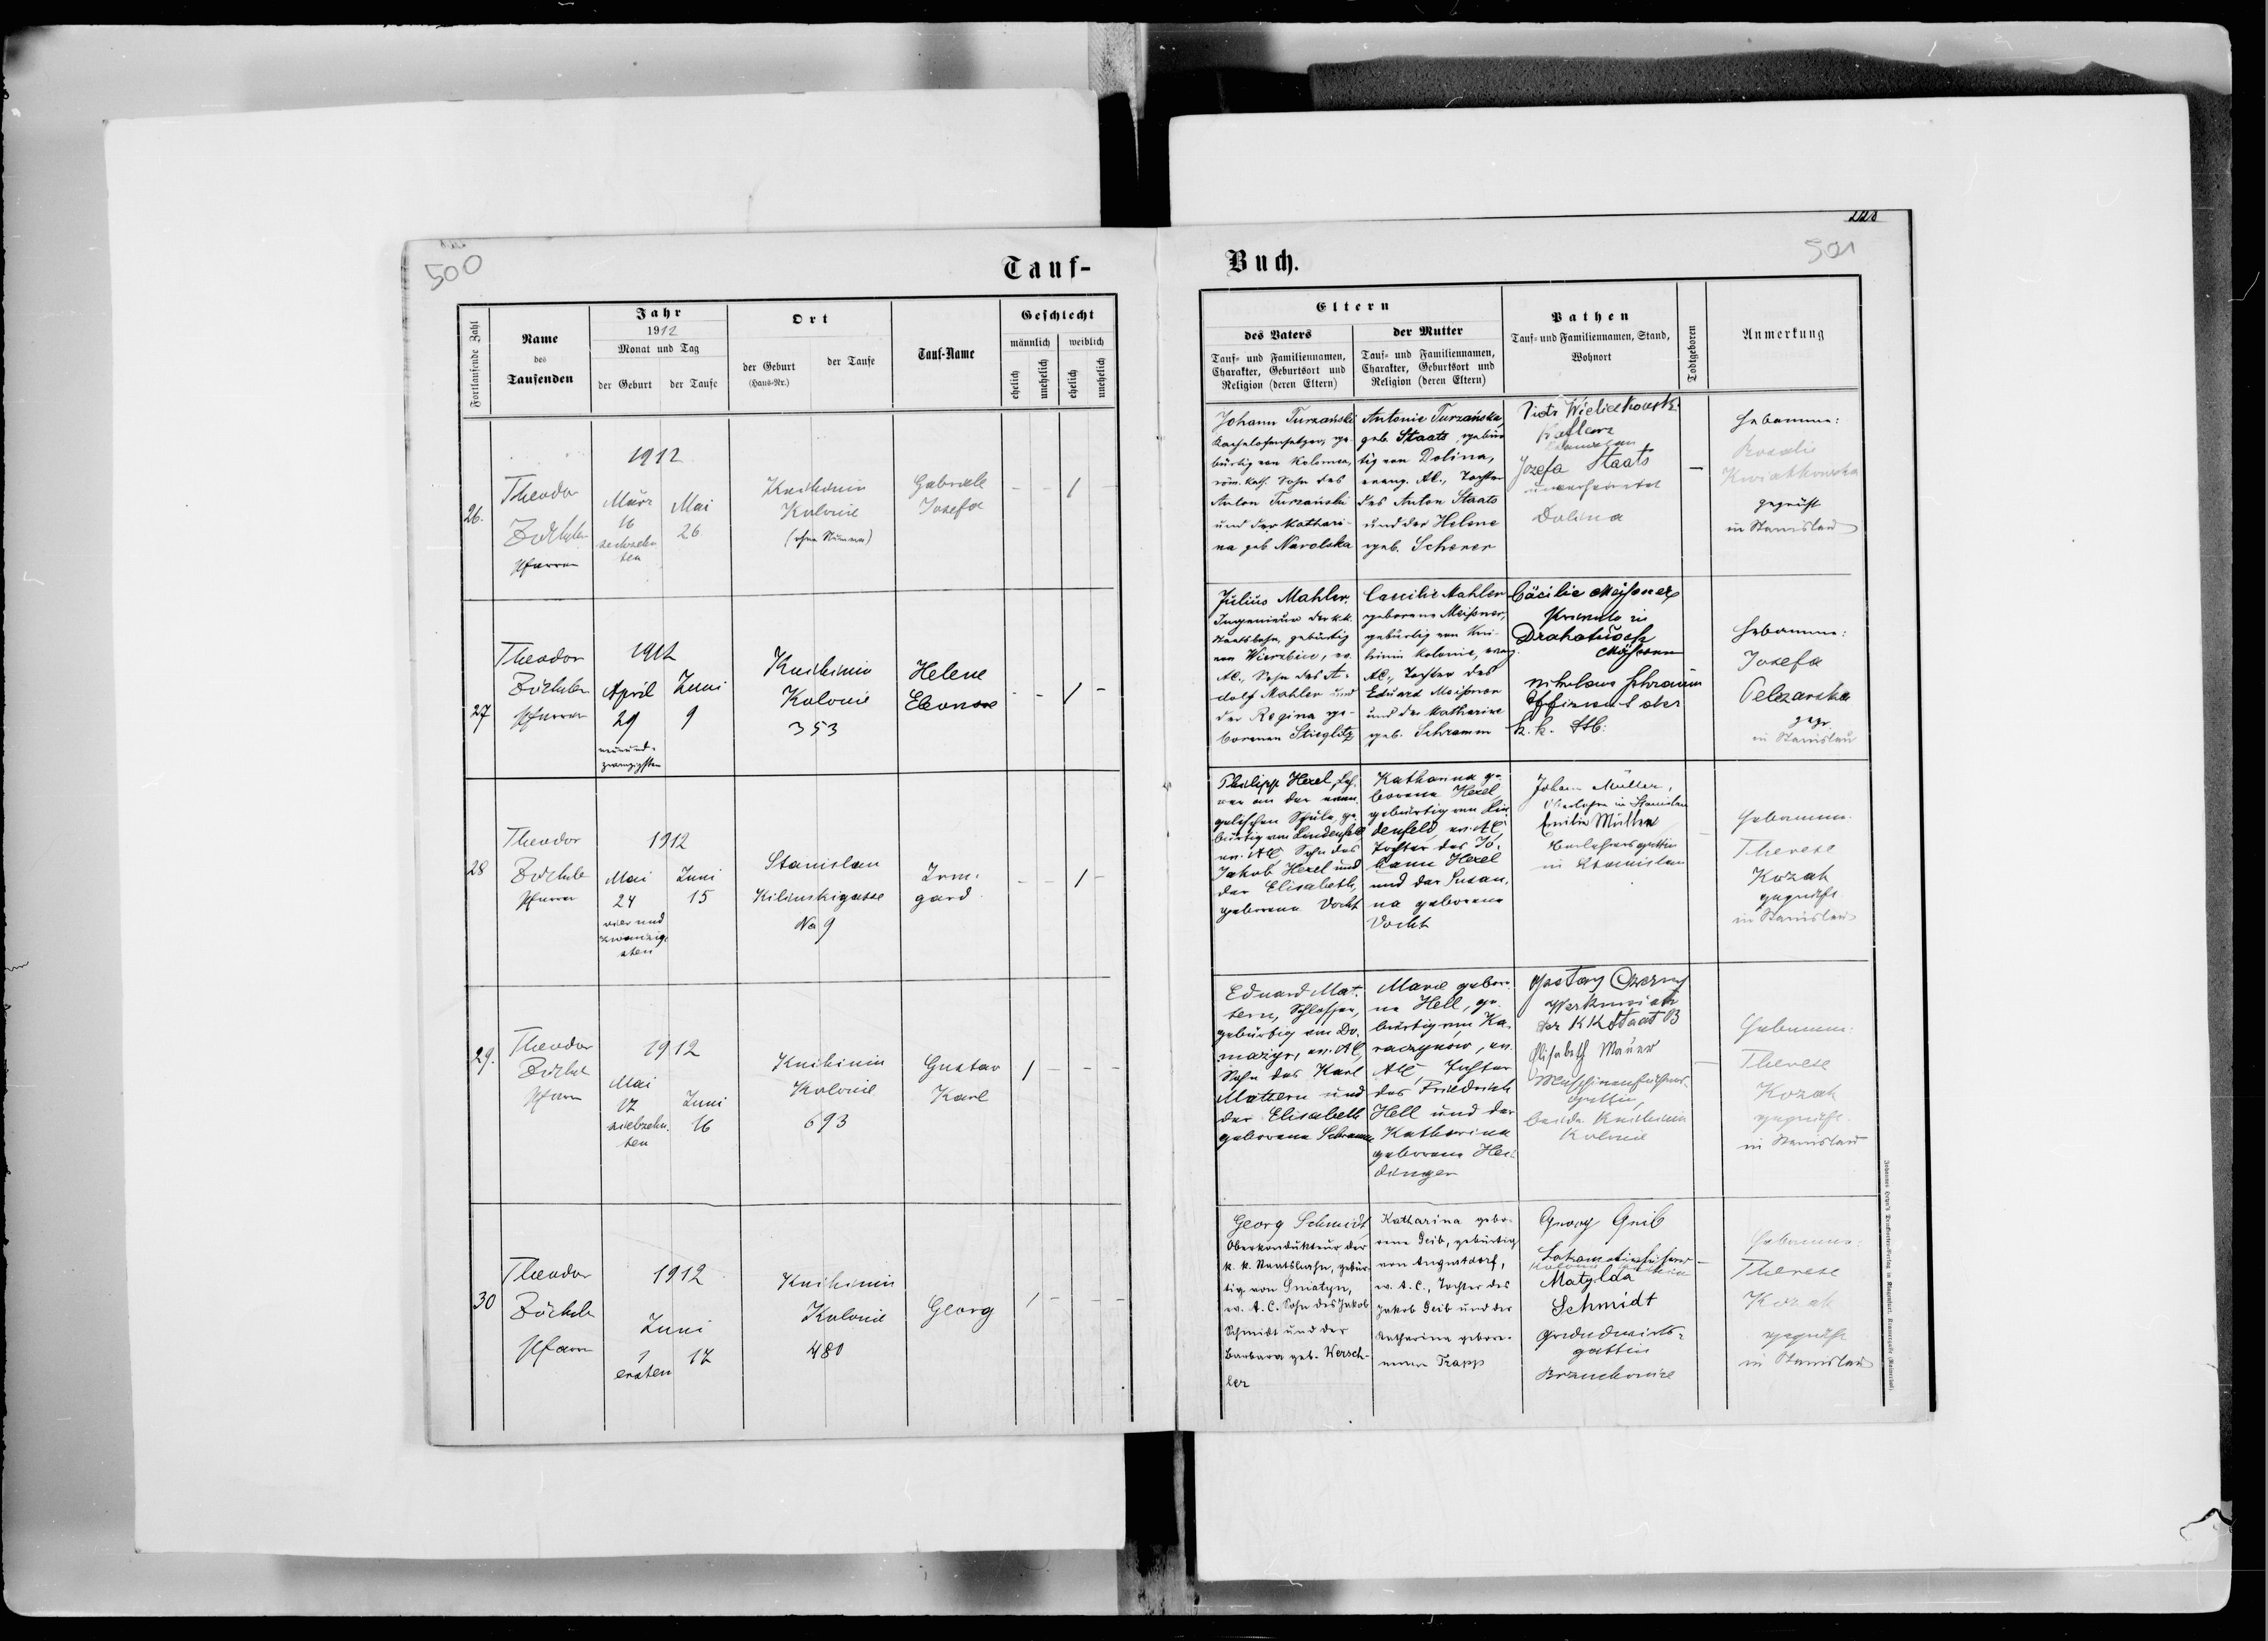 500
Tauf-
Fortlaufende Zahl
Name
des
Taufenden
Jahr
1912
Monat und Tag
der Geburt
der Taufe
Ort
der Geburt
(Haus-Nr.)
der Taufe
Tauf-Name
Geschlecht
männlich
weiblich
ehelich
unehelich
ehelich
unehelich
26.
Theodor
Zöckler
Pfarrer
1912
März
16
sechzehn
ten
Mai
26
Knihinin
Kolonie
(ohne Nummer)
Gabriele
Josefa
- - 1 -
27
Theodor
Zöckler
Pfarrer
1912
April
29
neunund-
zwanzigsten
Juni
9
Knihinin
Kolonie
353
Helene
Eleonore
- - 1 -
28
Theodor
Zöckler
Pfarrer
1912
Mai
24
vier und
zwanzig
sten
Juni
15
Stanislau
Kilinskigasse
No 9
Irm-
gard
- - 1 -
29.
Theodor
Zöckler
Pfarrer
1912
Mai
17
siebzehn
ten
Juni
16
Knihinin
Kolonie
693
Gustav
Karl
1 - - -
30
Theodor
Zöckler
Pfarrer
1912
Juni
1
ersten
17
Knihinin
Kolonie
480
Georg
1 - - -
228
501
Buch.
Eltern
des Vaters
Tauf- und Familiennamen,
Charakter, Geburtsort und
Religion (deren Eltern)
der Mutter
Tauf- und Familiennamen,
Charakter, Geburtsort und
Religion (deren Eltern)
Pathen
Tauf- und Familiennamen, Stand,
Wohnort
Todtgeboren
Anmerkung
Johann Turzański
Kachelofensetzer, ge-
bürtig von Kolomea,
röm. kath. Sohn des
Anton Turzański
und der Kathari-
na geb. Narolska
Antonie Turzańska
geb. Staats, gebür
tig von Dolina,
evang. AC., Tochter
des Anton Staats
und der Helene
geb. Scherer
Piotr
Jozefa Staats
unverheiratet
Dolina
-
Hebamme:
Rosalie
Kwiatkowska
geprüft
in Stanislau
Julius Mahler,
Ingenieur der k.k.
Staatsbahn, gebürtig
von Wierzbica, ev.
AC., Sohn des A-
dolf Mahler und
der Regina ge-
borenen Stieglitz
Caecilie Mahler
geborene Meißner,
gebürtig von Kni-
hinin Kolonie, evag.
AC., Tochter des
Eduard Meißner
und der Katharine
geb. Schramm
Cäcilie Meißner
Private in
Nikolaus Schramm
Offizial der
k. k. Stb.
Hebamme:
Josefa
Pelczarska
gepr.
in Stanislau
Philipp Hexel, Leh-
rer an der evan.
gelischen Schule, ge-
bürtig von Lindenfeld
ev. AC, Sohn des
Jakob Hexel und
der Elisabeth,
geborene Vocht
Katharina ge-
borene Hexel,
gebürtig von Lin
denfeld, ev. AC,
Tochter des Jo-
hann Hexel
und der Susan-
na geborene
Vocht
Johann Müller,
Oberlehrer in Stanislau
Emilie Müller
Oberlehrersgattin
in Stanislau
-
Hebamme
Therese
Kozak
geprüft
in Stanislau
Eduard Mat-
tern, Schlosser,
gebürtig von Do-
mazyr, ev. AC,
Sohn des Karl
Mattern und
der Elisabeth
geborene Schramm
Marie gebore-
ne Hell, ge-
bürtig von Ka-
raczynów, ev.
AC, Tochter
des Friedrich
Hell und der
Katharina
geborene Hei
dinger
Gustav Czerny
der KK Staat B
Elisabeth Mauer
Maschinenführers-
gattin,
beide Knihinin
Kolonie
-
Hebamme:
Therese
Kozak
geprüft
in Stanislau
Georg Schmidt,
Oberkondukteur der
k. k. Staatsbahn, gebür-
tig von Sniatyn,
ev. A.C. Sohn des Jakob
Schmidt und der
Barbara geb. Kersch-
ler
Katharina gebo-
rene Geib, gebürtig
von Augustdorf,
ev. A.C., Tochter des
Jakob Geib und der
Katharina gebore-
nene Trapp
Georg Geib
Lokomotivführer
Matylda
Schmidt
Grundwirts-
gattin
Brzuchowice
-
Hebamme:
Therese
Kozak
geprüft
in Stanislau